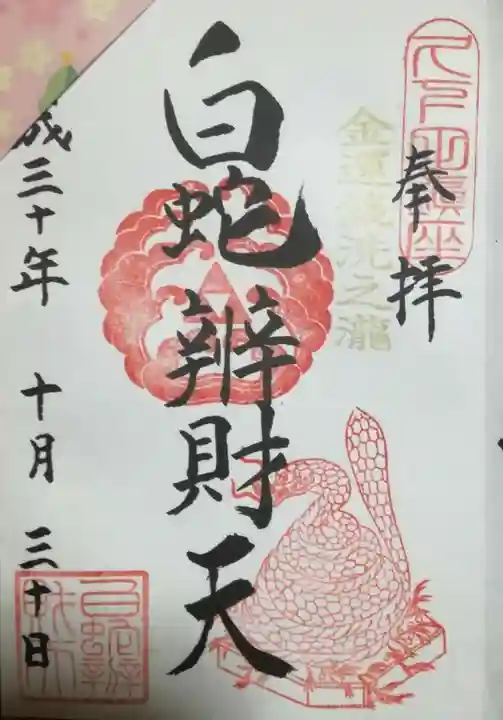 奉拝
金運銭洗之瀧
白蛇辨財天
成三十年 十月 三十日